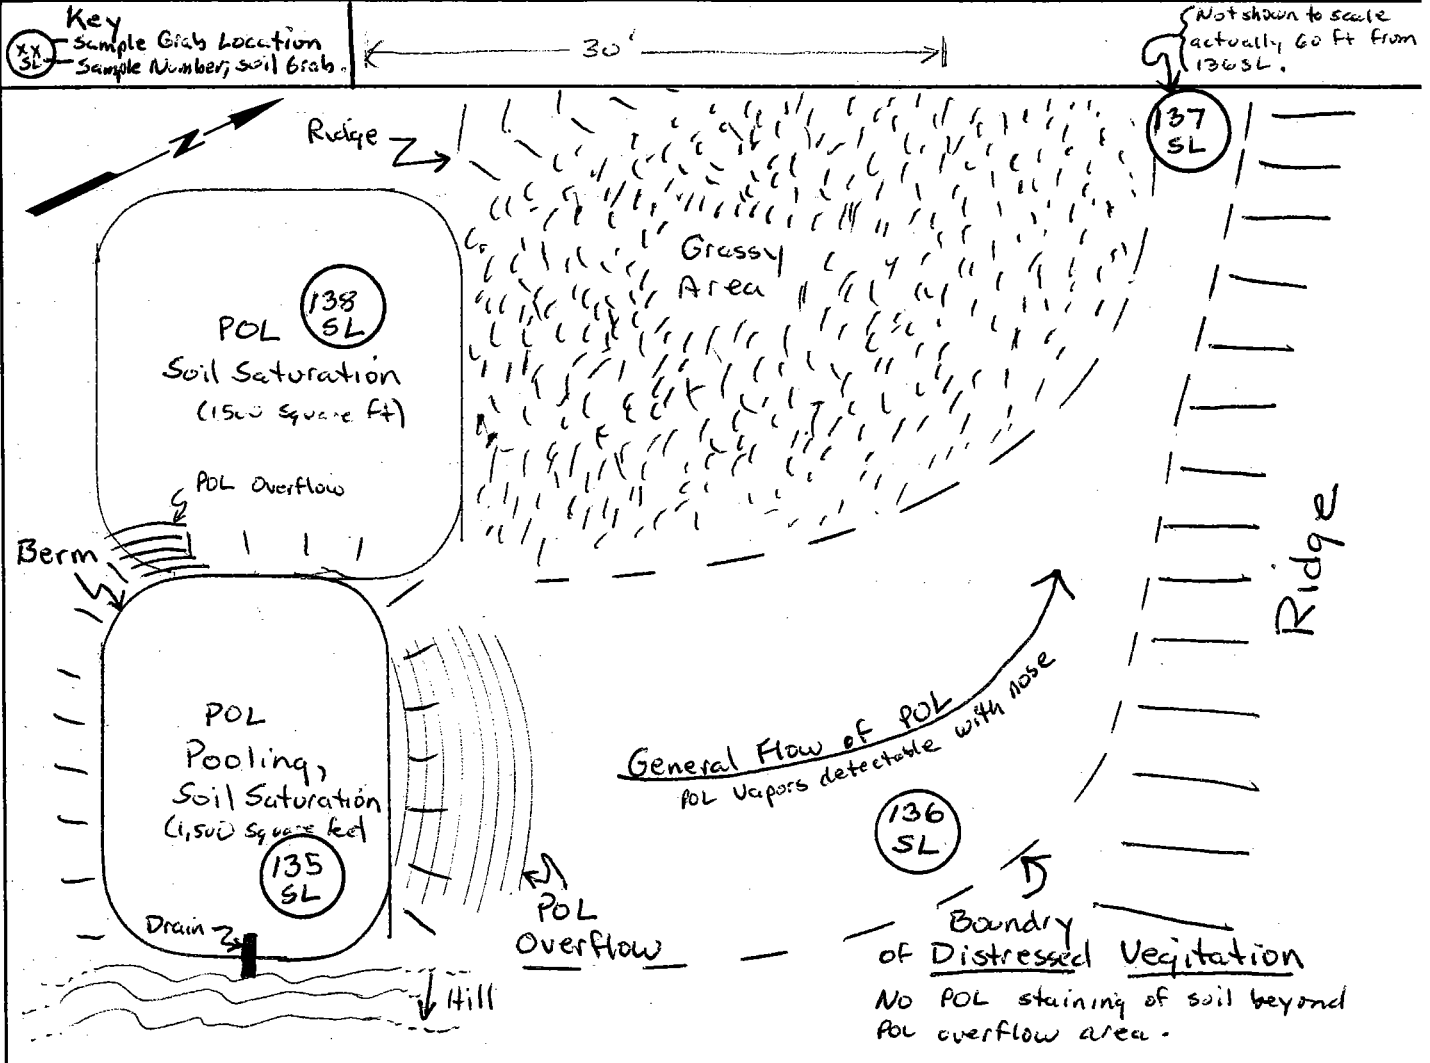 Key
Sample Grab Location
Sample Number, soil Grab.
XX
SL
30'
Not shown to scale
actually 60 ft from
136SL.
N
Ridge
137
SL
Grassy
Area
138
SL
POL
Soil Saturation
(1500 square ft)
POL Overflow
Berm
Ridge
POL
Pooling,
Soil Saturation
(1,500 square feet
135
SL
Drain
Hill
POL
Overflow
General Flow of POL
POL Vapors detectable with nose
136
SL
Boundry
of Distressed Vegitation
No POL staining of soil beyond
POL overflow area.